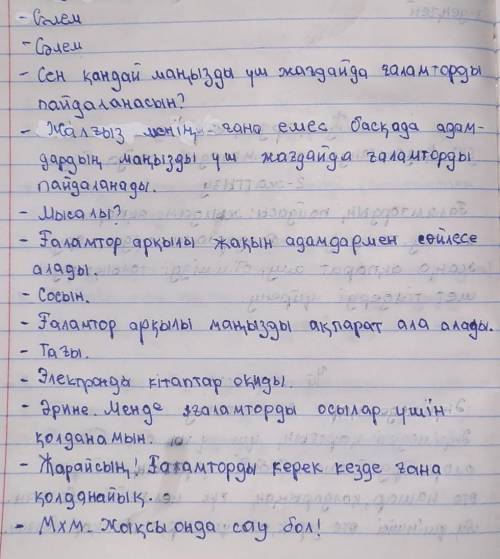 - Сәлем
- Сәлем
- Сен қандай маңызды үш жағдайда ғаламторды
пайдаланасын?
- Жалғыз менің - ғана емес басқада адам-
дардың маңызды үш жағдайда ғаламторды
пайдаланады.
- Мысалы?
- Ғаламтор арқылы жақын адамдармен сөйлесе
алады.
- Сосын.
- Ғаламтор арқылы маңызды ақпарат ала алады.
- Тағы.
- Электронды кітаптар оқиды.
- Әрине. Менде ғаламторды осылар үшін
қолданамын.
- Жарайсың! Ғаламторды керек кезде ғана
қолданайық.
- Мхм. Жақсы онда сау бол!